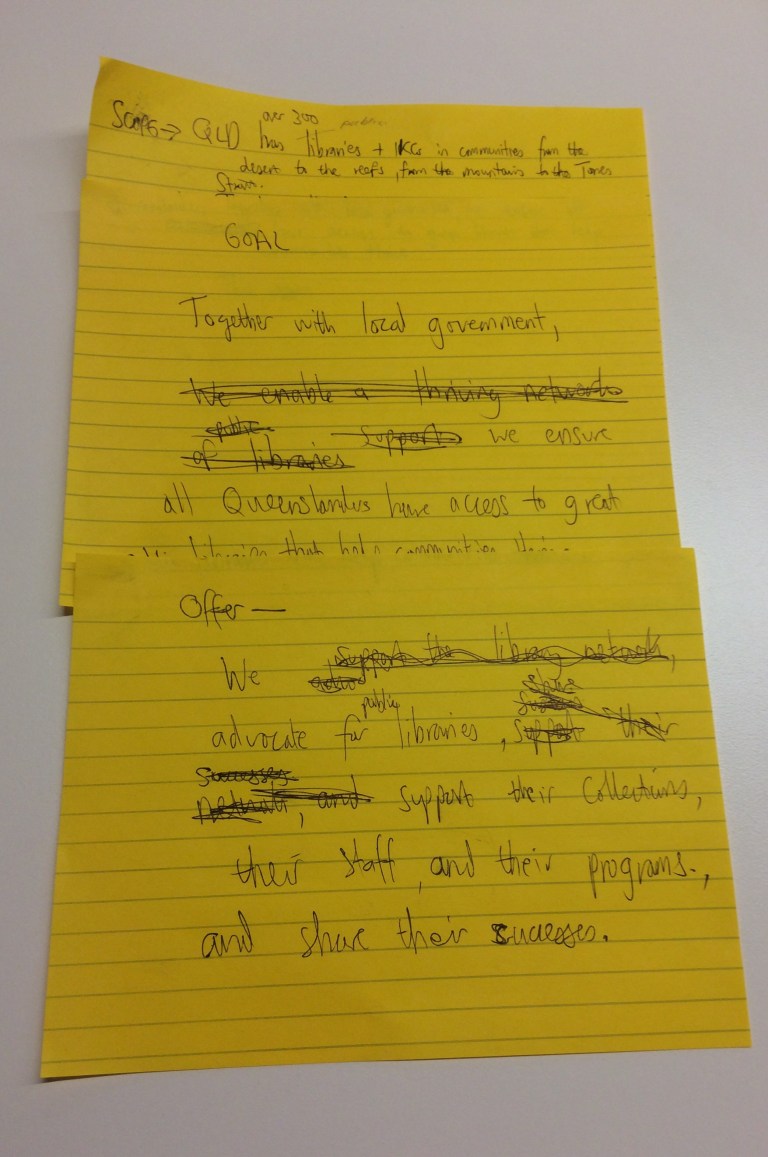 over 300 public
Scope → QLD has libraries + IKCs in communities from the
desert to the reefs, from the mountains to the Torres
Strait.
GOAL
Together with local government,
We enable a thriving network
public
of libraries support we ensure
all Queenslanders have access to great
libraries that help communities
Offer —
We support the library network,
public share
advocate for libraries, support their
successes
network, and support their collections,
their staff, and their programs.,
and share their successes.